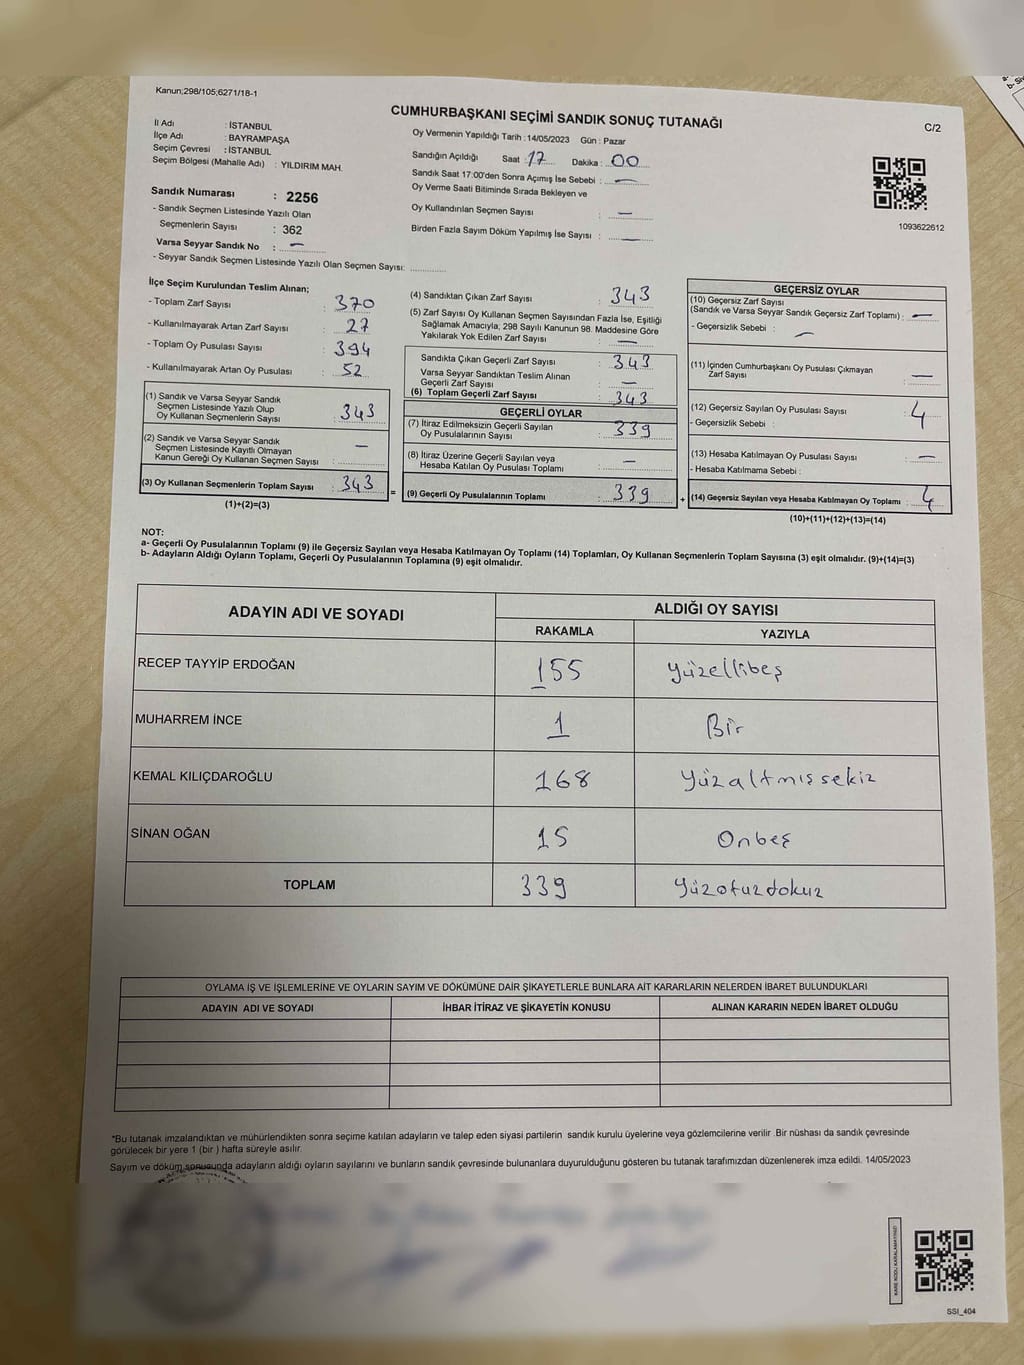 Kanun;298/105;6271/18-1
CUMHURBAŞKANI SEÇİMİ SANDIK SONUÇ TUTANAĞI
C/2
İl Adı : İSTANBUL
İlçe Adı : BAYRAMPAŞA
Seçim Çevresi : İSTANBUL
Seçim Bölgesi (Mahalle Adı) : YILDIRIM MAH.
Sandık Numarası : 2256
- Sandık Seçmen Listesinde Yazılı Olan
Seçmenlerin Sayısı : 362
Varsa Seyyar Sandık No : –
- Seyyar Sandık Seçmen Listesinde Yazılı Olan Seçmen Sayısı:
Oy Vermenin Yapıldığı Tarih : 14/05/2023 Gün : Pazar
Sandığın Açıldığı Saat : 17 Dakika : 00
Sandık Saat 17:00'den Sonra Açımış İse Sebebi : –
Oy Verme Saati Bitiminde Sırada Bekleyen ve
Oy Kullandırılan Seçmen Sayısı : –
Birden Fazla Sayım Döküm Yapılmış İse Sayısı : –
1093622612
İlçe Seçim Kurulundan Teslim Alınan;
- Toplam Zarf Sayısı : 370
- Kullanılmayarak Artan Zarf Sayısı : 27
- Toplam Oy Pusulası Sayısı : 394
- Kullanılmayarak Artan Oy Pusulası : 52
(1) Sandık ve Varsa Seyyar Sandık
Seçmen Listesinde Yazılı Olup
Oy Kullanan Seçmenlerin Sayısı : 343
(2) Sandık ve Varsa Seyyar Sandık
Seçmen Listesinde Kayıtlı Olmayan
Kanun Gereği Oy Kullanan Seçmen Sayısı : –
(3) Oy Kullanan Seçmenlerin Toplam Sayısı : 343
(1)+(2)=(3)
=
(4) Sandıktan Çıkan Zarf Sayısı : 343
(5) Zarf Sayısı Oy Kullanan Seçmen Sayısından Fazla İse, Eşitliği
Sağlamak Amacıyla; 298 Sayılı Kanunun 98. Maddesine Göre
Yakılarak Yok Edilen Zarf Sayısı : –
Sandıkta Çıkan Geçerli Zarf Sayısı : 343
Varsa Seyyar Sandıktan Teslim Alınan
Geçerli Zarf Sayısı : –
(6) Toplam Geçerli Zarf Sayısı : 343
GEÇERLİ OYLAR
(7) İtiraz Edilmeksizin Geçerli Sayılan
Oy Pusulalarının Sayısı : 339
(8) İtiraz Üzerine Geçerli Sayılan veya
Hesaba Katılan Oy Pusulası Toplamı : –
(9) Geçerli Oy Pusulalarının Toplamı : 339
+
GEÇERSİZ OYLAR
(10) Geçersiz Zarf Sayısı
(Sandık ve Varsa Seyyar Sandık Geçersiz Zarf Toplamı) : –
- Geçersizlik Sebebi : –
(11) İçinden Cumhurbaşkanı Oy Pusulası Çıkmayan
Zarf Sayısı : –
(12) Geçersiz Sayılan Oy Pusulası Sayısı : 4
- Geçersizlik Sebebi :
(13) Hesaba Katılmayan Oy Pusulası Sayısı : –
- Hesaba Katılmama Sebebi :
(14) Geçersiz Sayılan veya Hesaba Katılmayan Oy Toplamı : 4
(10)+(11)+(12)+(13)=(14)
NOT:
a- Geçerli Oy Pusulalarının Toplamı (9) ile Geçersiz Sayılan veya Hesaba Katılmayan Oy Toplamı (14) Toplamları, Oy Kullanan Seçmenlerin Toplam Sayısına (3) eşit olmalıdır. (9)+(14)=(3)
b- Adayların Aldığı Oyların Toplamı, Geçerli Oy Pusulalarının Toplamına (9) eşit olmalıdır.
ADAYIN ADI VE SOYADI ALDIĞI OY SAYISI
RAKAMLA YAZIYLA
RECEP TAYYİP ERDOĞAN 155 yüzellibeş
MUHARREM İNCE 1 Bir
KEMAL KILIÇDAROĞLU 168 yüzaltmışsekiz
SİNAN OĞAN 15 Onbeş
TOPLAM 339 yüzotuzdokuz
OYLAMA İŞ VE İŞLEMLERİNE VE OYLARIN SAYIM VE DÖKÜMÜNE DAİR ŞİKAYETLERLE BUNLARA AİT KARARLARIN NELERDEN İBARET BULUNDUKLARI
ADAYIN ADI VE SOYADI İHBAR İTİRAZ VE ŞİKAYETİN KONUSU ALINAN KARARIN NEDEN İBARET OLDUĞU
*Bu tutanak imzalandıktan ve mühürlendikten sonra seçime katılan adayların ve talep eden siyasi partilerin sandık kurulu üyelerine veya gözlemcilerine verilir .Bir nüshası da sandık çevresinde
görülecek bir yere 1 (bir ) hafta süreyle asılır.
Sayım ve döküm sonusunda adayların aldığı oyların sayılarını ve bunların sandık çevresinde bulunanlara duyurulduğunu gösteren bu tutanak tarafımızdan düzenlenerek imza edildi. 14/05/2023
KARE KODU KARALAMAYINIZ!
SSI_404